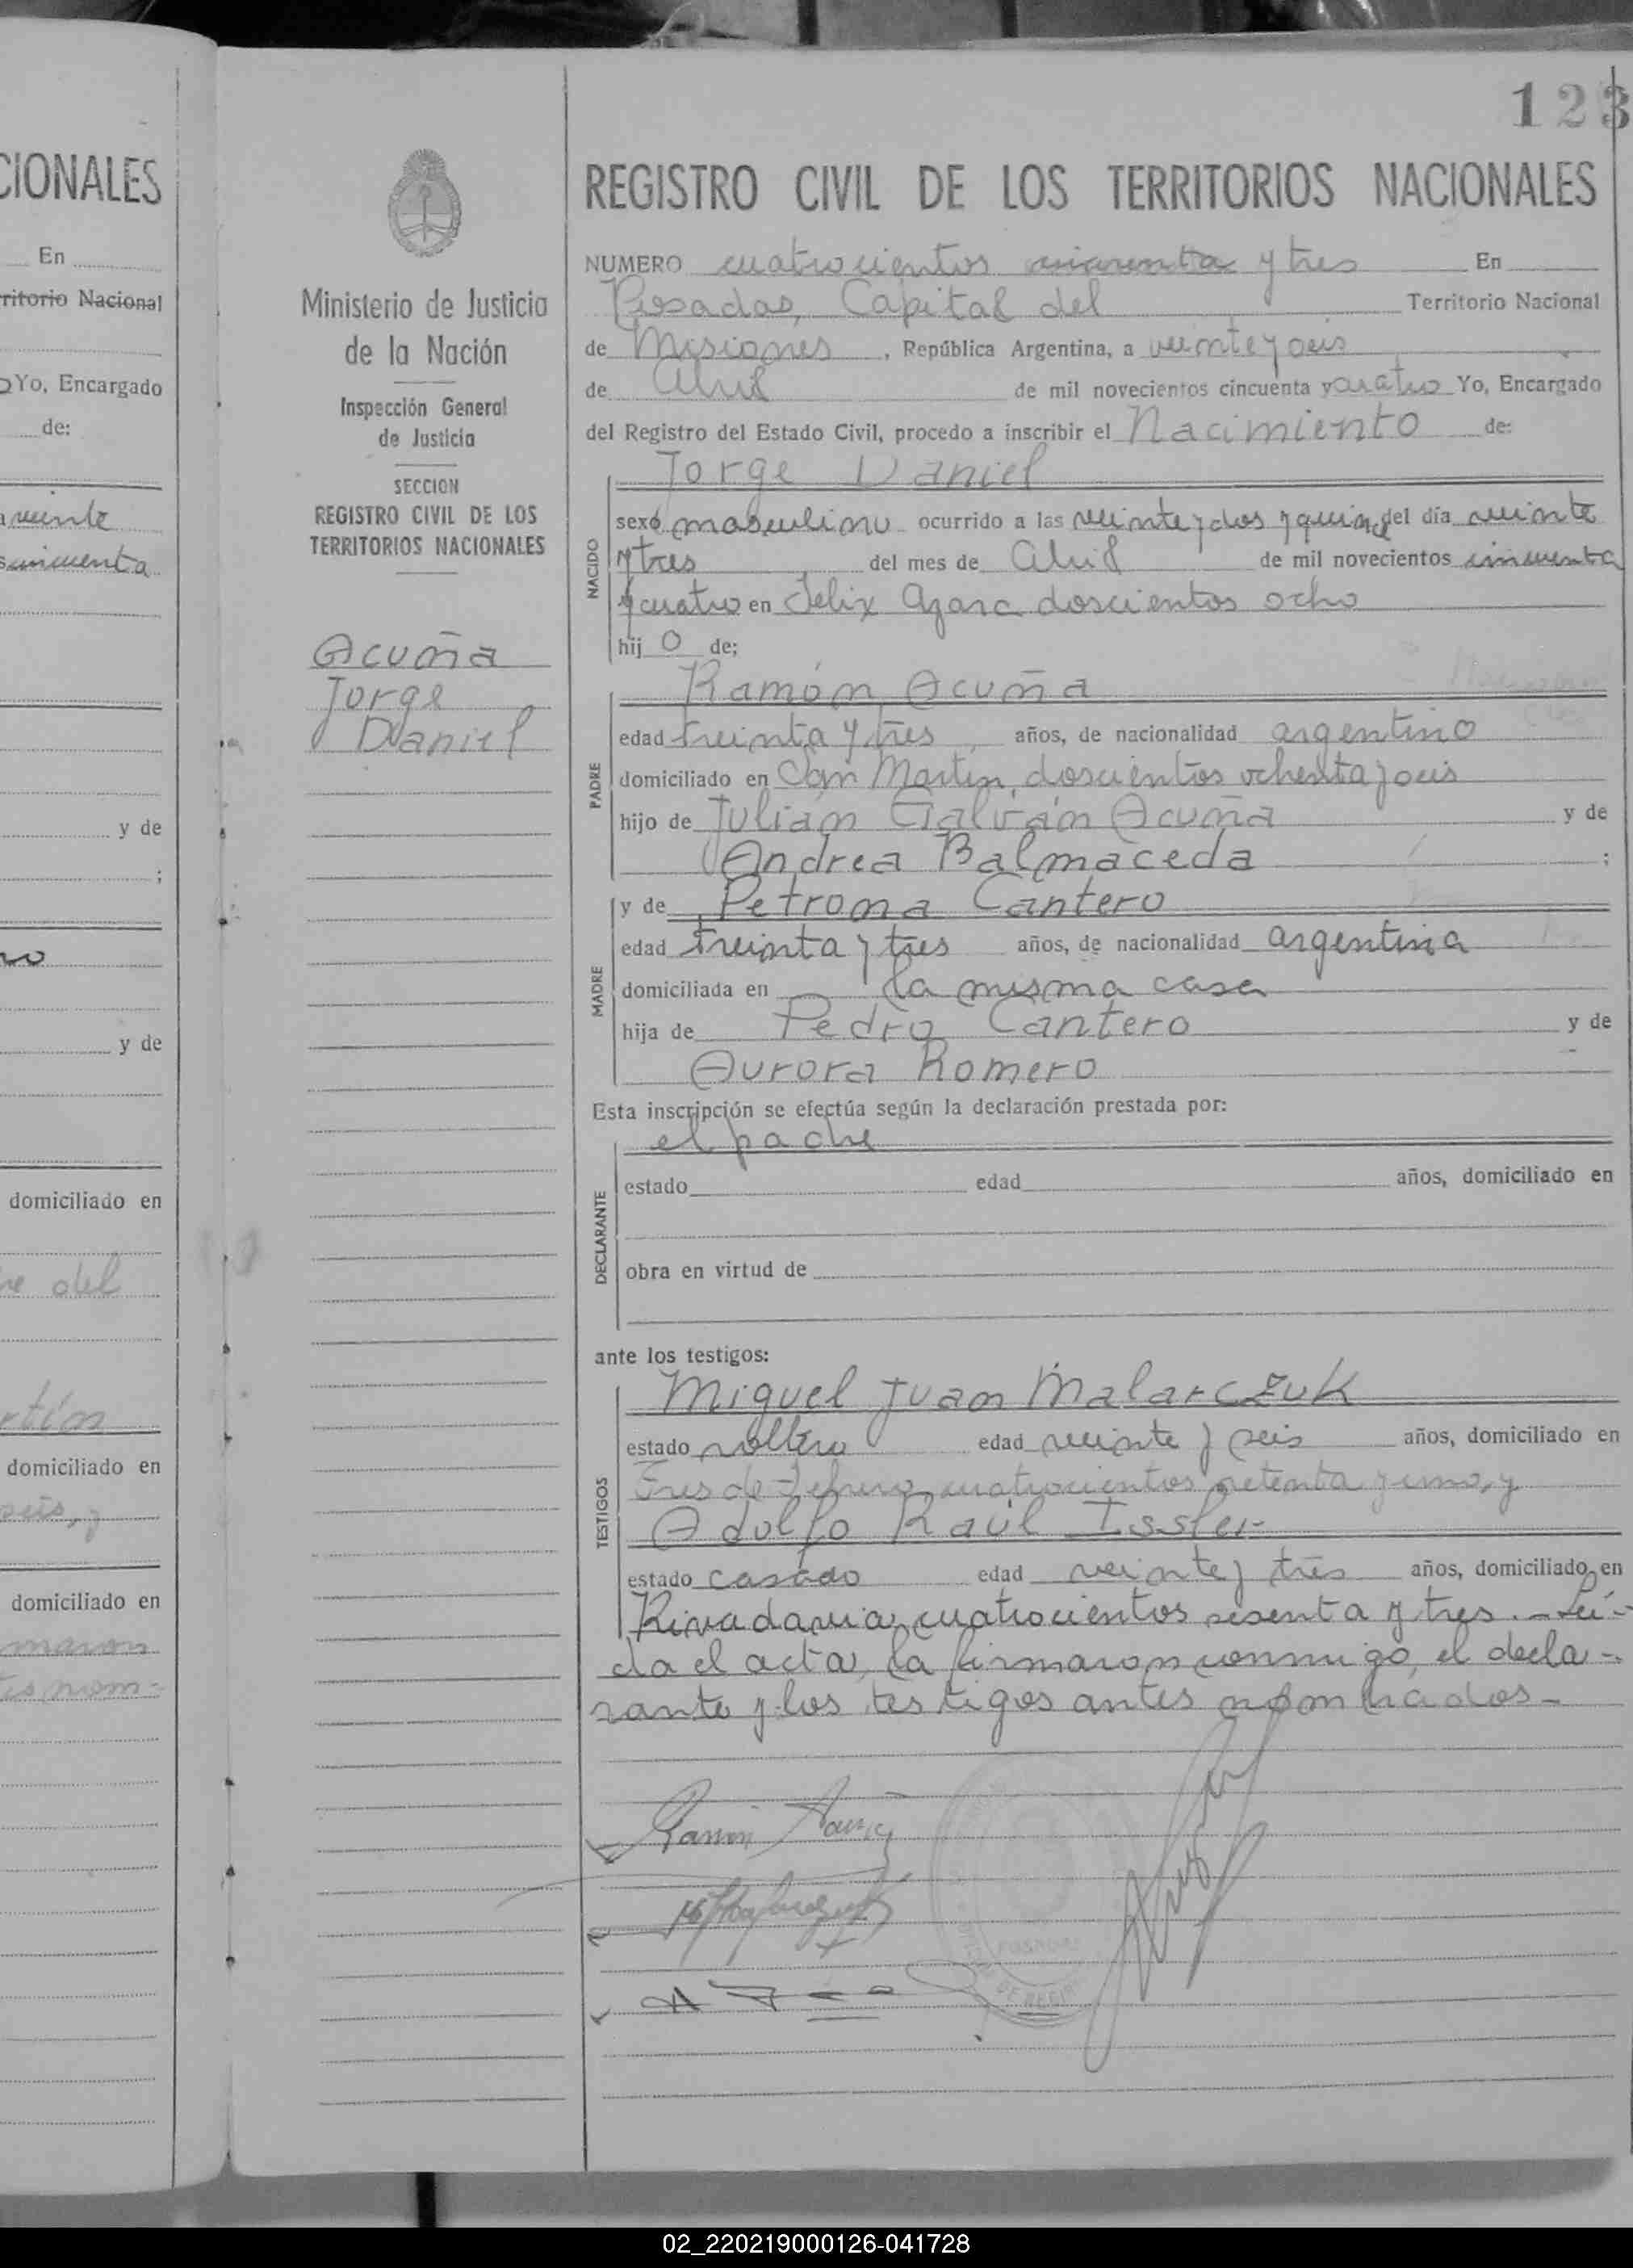 123
CIONALES
En
ritorio Nacional
Yo, Encargado
de:
veinte
cincuenta
y de
;
y de
domiciliado en
del
domiciliado en
seis, y
domiciliado en
maron
nom-
Ministerio de Justicia
de la Nación
Inspección General
de Justicia
SECCION
REGISTRO CIVIL DE LOS
TERRITORIOS NACIONALES
Acuña
Jorge
Daniel
REGISTRO CIVIL DE LOS TERRITORIOS NACIONALES
NUMERO cuatrocientos cuarenta y tres En
Posadas, Capital del Territorio Nacional
de Misiones, República Argentina, a veinte y seis
de Abril de mil novecientos cincuenta y cuatro Yo, Encargado
del Registro del Estado Civil, procedo a inscribir el Nacimiento de:
Jorge Daniel
NACIDO
sexo masculino ocurrido a las veinte y dos y quince del día veinte
y tres del mes de Abril de mil novecientos cincuenta
y cuatro en Felix Azara doscientos ocho
hij o de;
Ramón Acuña
PADRE
edad treinta y tres años, de nacionalidad argentino
domiciliado en San Martin, doscientos ochenta y seis
hijo de Julián Galván Acuña y de
Andrea Balmaceda ;
y de Petrona Cantero
MADRE
edad treinta y tres años, de nacionalidad argentina
domiciliada en la misma casa
hija de Pedro Cantero y de
Aurora Romero
Esta inscripción se efectúa según la declaración prestada por:
el padre
DECLARANTE
estado edad años, domiciliado en
obra en virtud de
ante los testigos:
Miguel Juan Malarczuk
TESTIGOS
estado soltero edad veinte y seis años, domiciliado en
Tres de Febrero cuatrocientos setenta y uno, y
Adolfo Raúl Issler
estado casado edad veinte y tres años, domiciliado en
Rivadavia, cuatrocientos sesenta y tres.- Leí-
da el acta, la firmaron conmigo, el decla-
rante y los testigos antes nombrados-
POSADAS
02_220219000126-041728